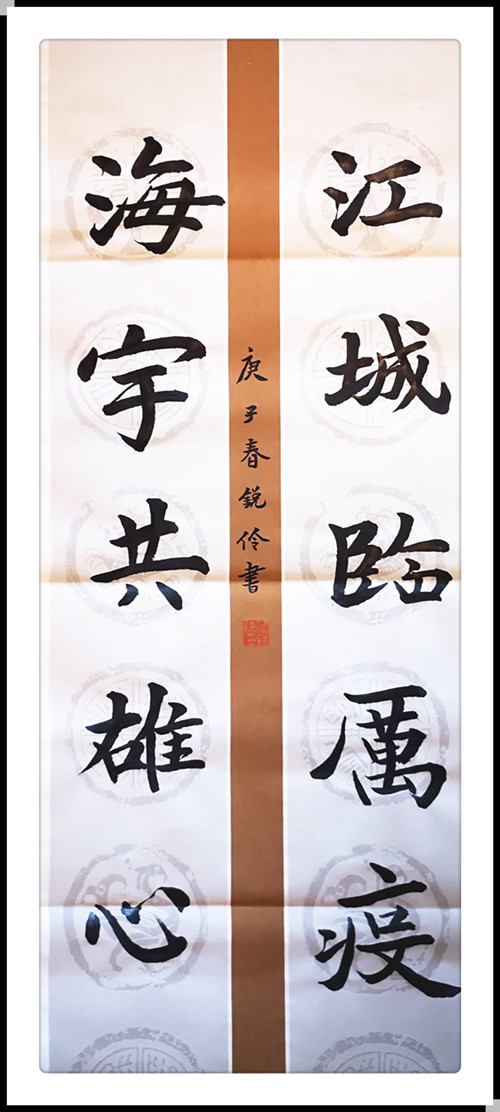 江城臨厲疫
海宇共雄心
庚子春銳伶書